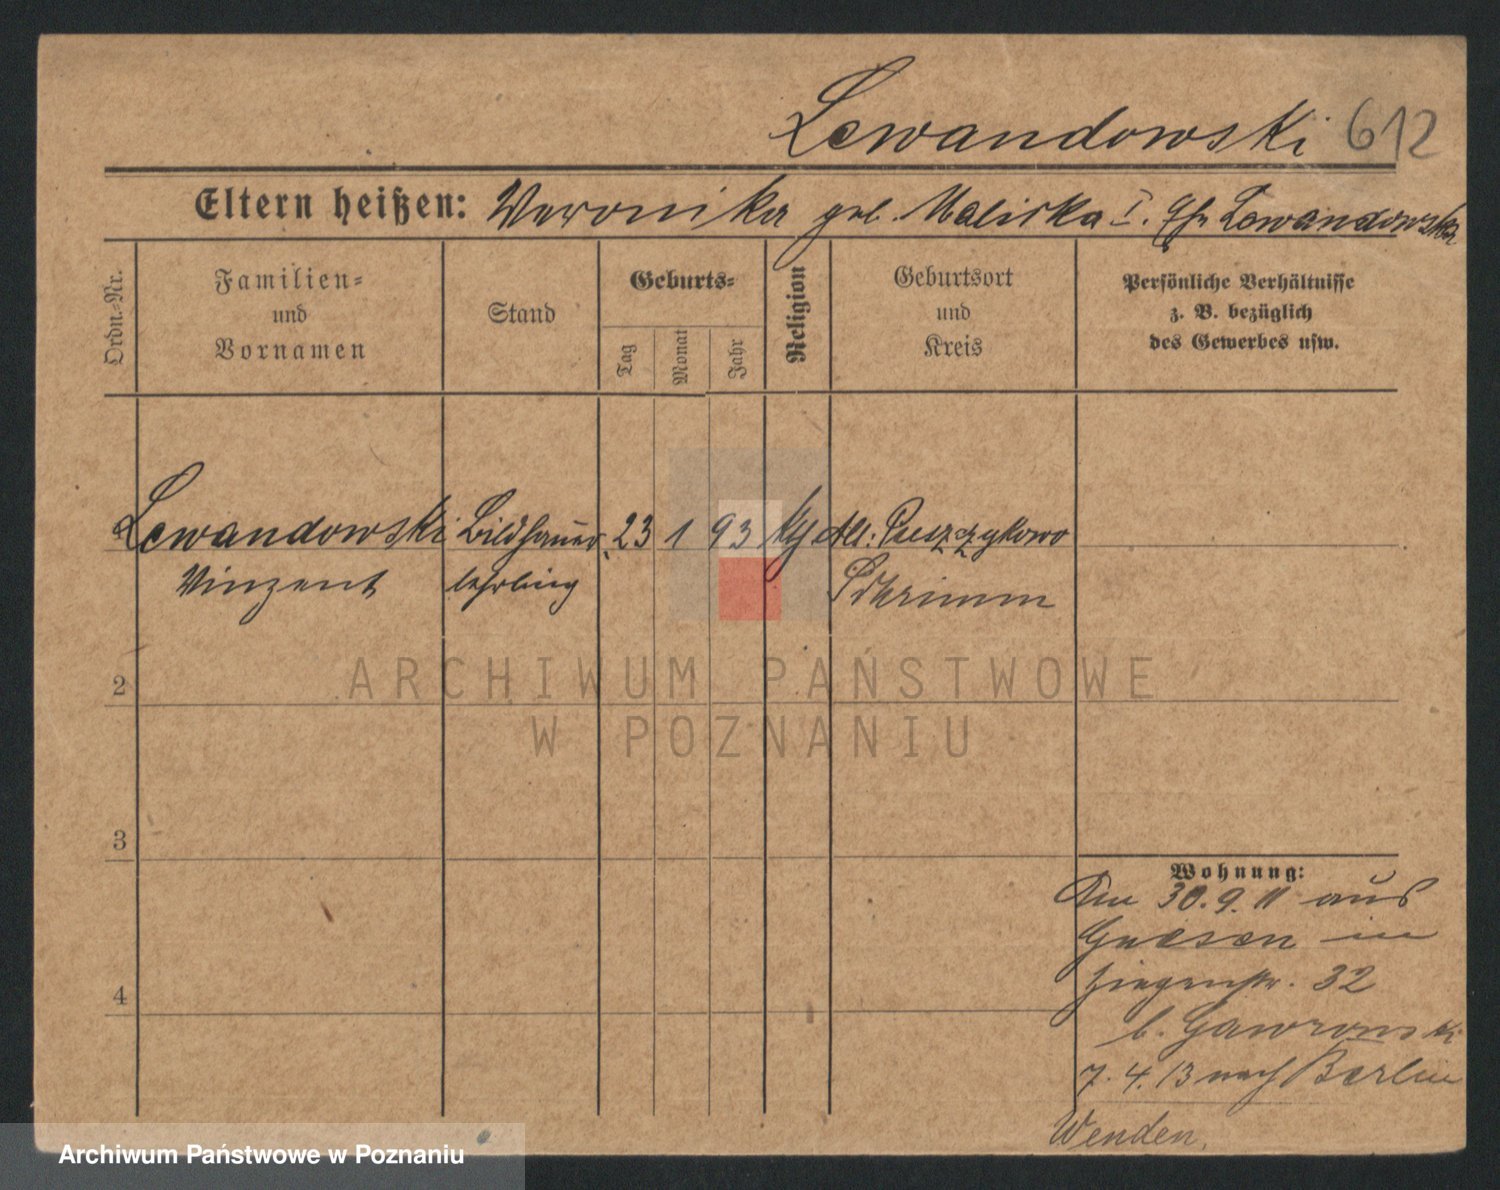 Lewandowski 612
Eltern heißen: Weronika geb. Malicka I. Ehe Lewandowska
Ordn.-Nr.
Familien-
und
Vornamen
Stand
Geburts-
Tag
Monat
Jahr
Religion
Geburtsort
und
Kreis
Persönliche Verhältnisse
z. B. bezüglich
des Gewerbes usw.
Lewandowski Bildhauer 23 1 93 Alt: Puszczykowo
Vinzent lehrling Schrimm
2
3
4
Wohnung:
30.9.11 aus
Gnesen in
Ziegenstr. 32
b. Gawronski
7.4.13 nach Berlin
Wenden.
ARCHIWUM PAŃSTWOWE
W POZNANIU
Archiwum Państwowe w Poznaniu